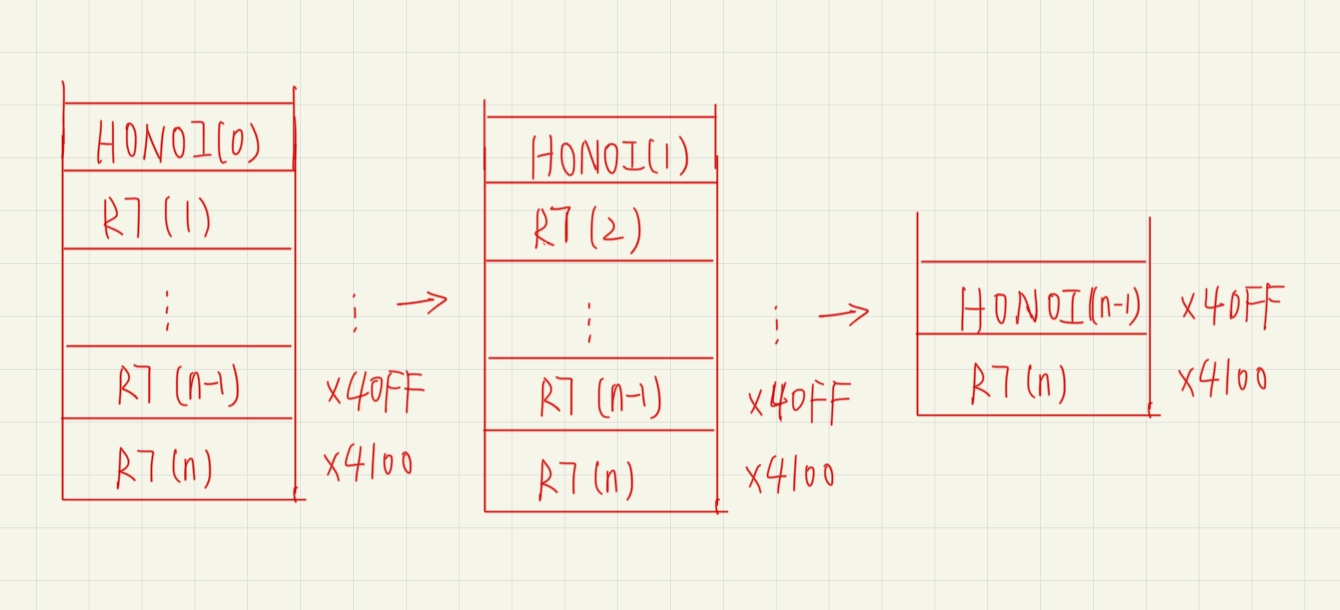 HONOI(0)
R7(1)
⋮
⋮ →
R7(n-1) x40FF
R7(n) x4100
HONOI(1)
R7(2)
⋮
⋮ →
R7(n-1) x40FF
R7(n) x4100
HONOI(n-1) x40FF
R7(n) x4100